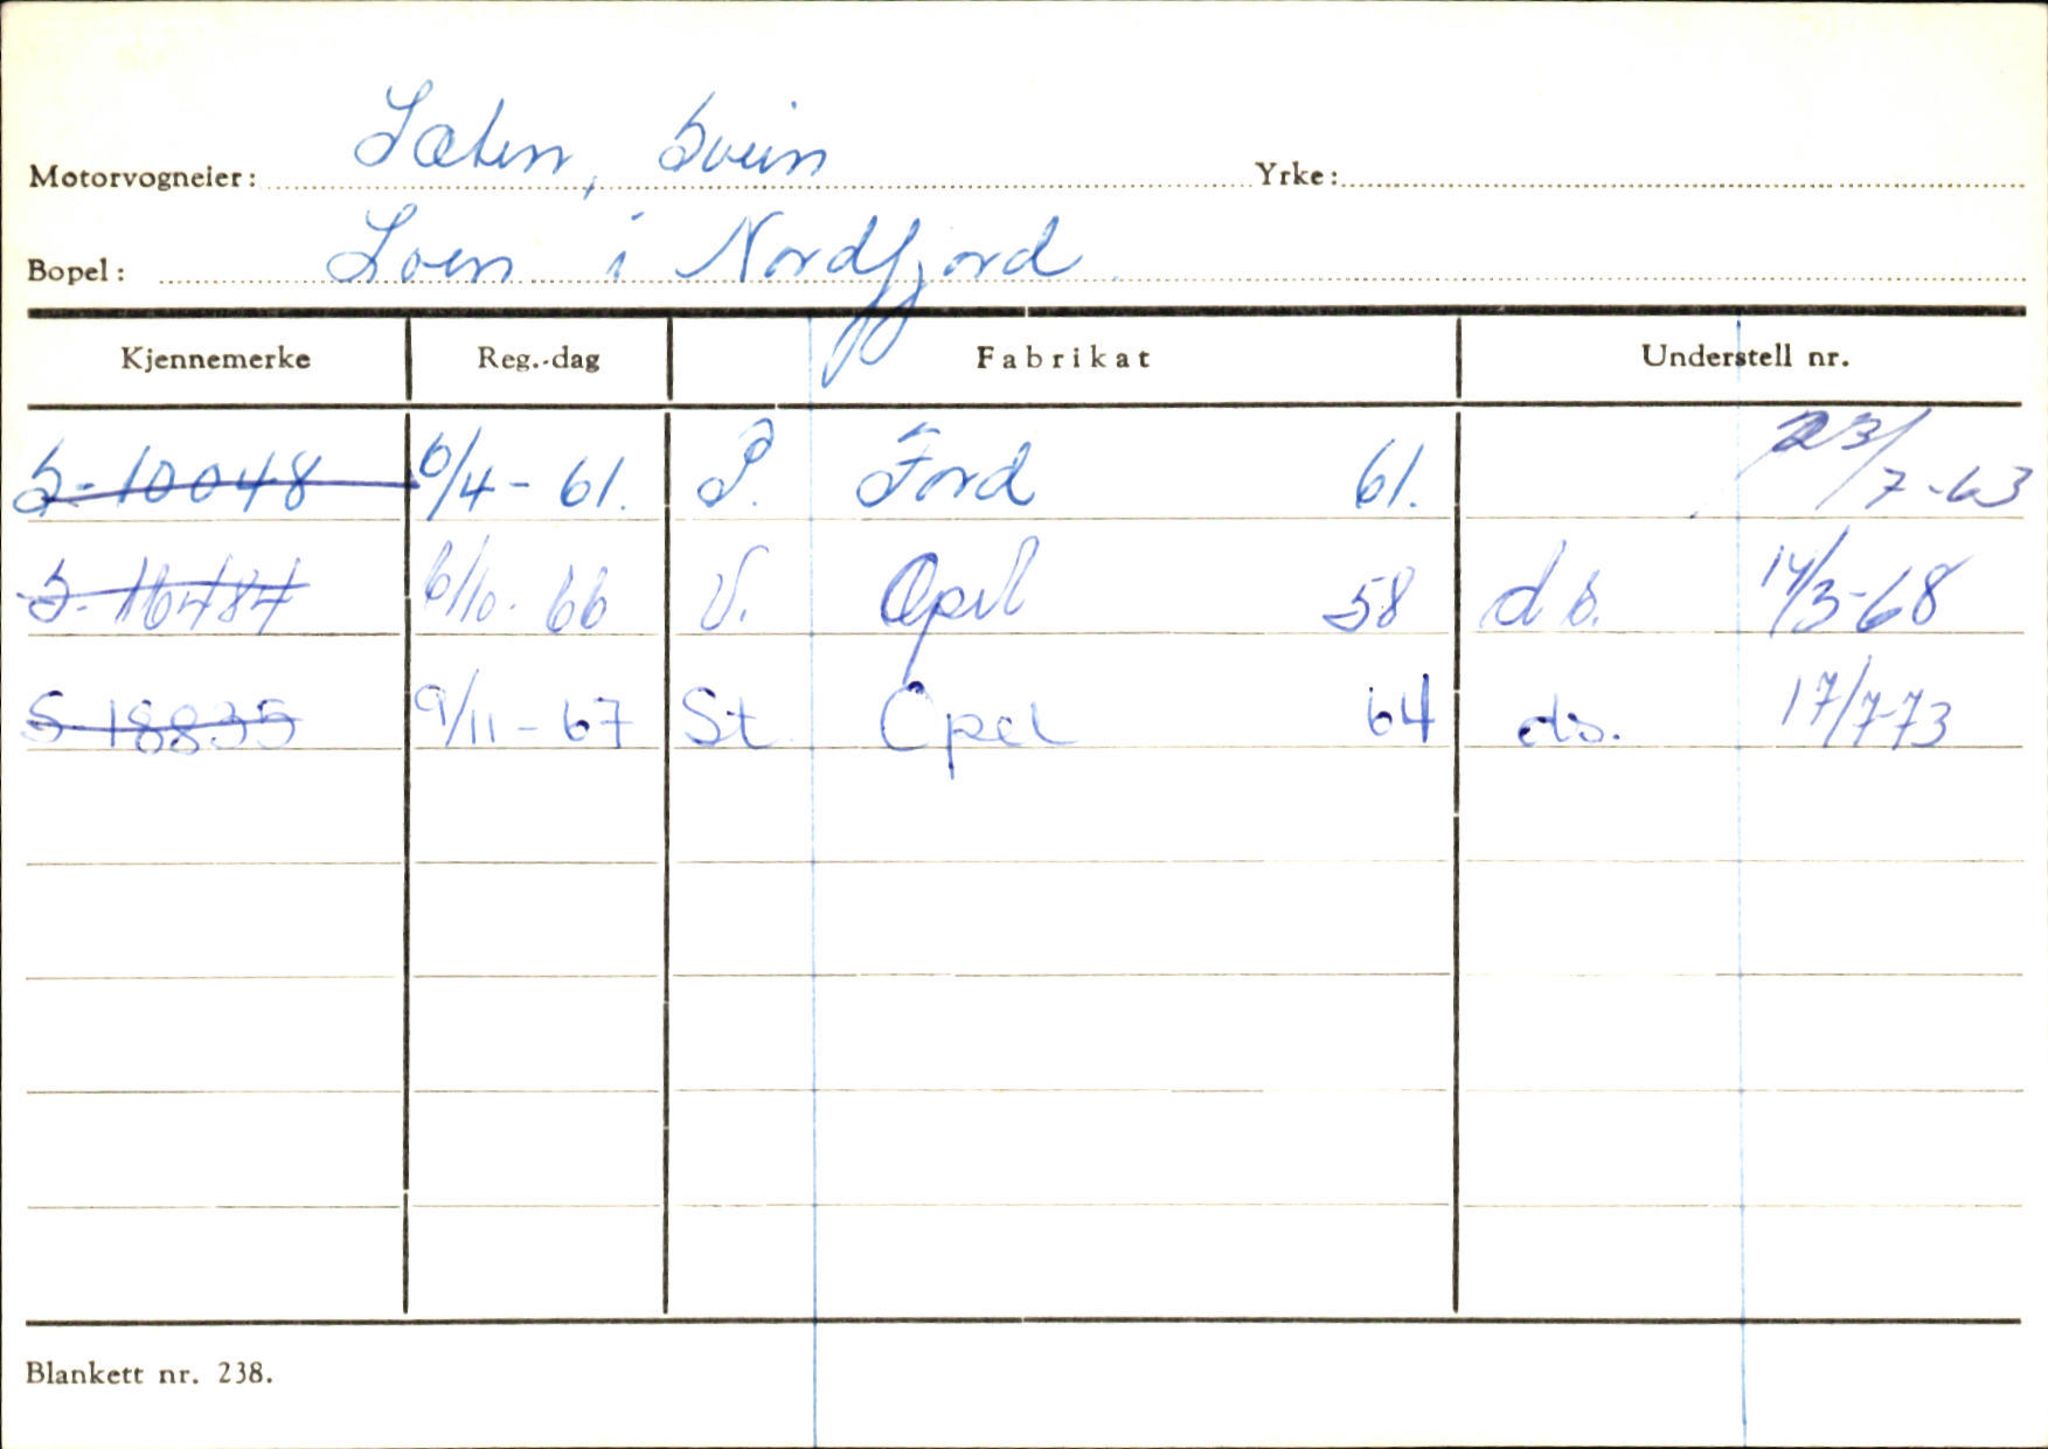 Motorvogneier: Sæten, Svein Yrke:
Bopel: Loen i Nordfjord
Kjennemerke Reg.-dag Fabrikat Understell nr.
S-10048 6/4-61. P. Ford 61. 23/7-63
S-16484 6/10-66 V. Opel 58 ds. 14/3-68
S-18835 9/11-67 St. Opel 64 ds. 17/7-73
Blankett nr. 238.